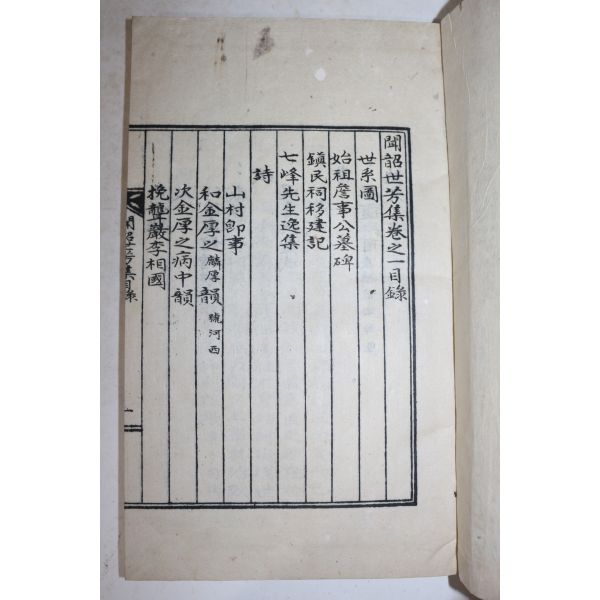 聞韶世芳集卷之一目錄
世系圖
始祖詹事公墓碑
鎭民祠移建記
七峰先生逸集
詩
山村卽事
和金厚之麟厚韻號河西
次金厚之病中韻
挽聾巖李相國
聞韶世芳集目錄
一